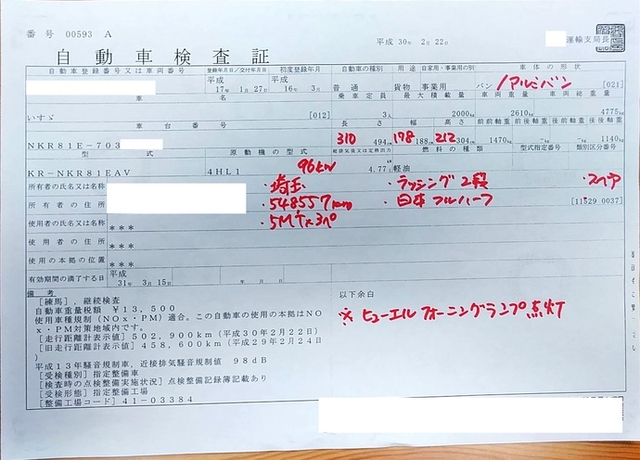 番号 00593 A
平成 30年 2月 22日
運輸支局長
自動車検査証
自動車登録番号又は車両番号 登録年月日/交付年月日 初度登録年月 自動車の種別 用途 自家用・事業用の別 車体の形状
平成 17年 1月 27日 平成 16年 3月 普通 貨物 事業用 バン /アルミバン [021]
車名 乗車定員 最大積載量 車両重量 車両総重量
いすゞ [012] 3人 2000kg 2610kg 4775kg
車台番号 長さ 幅 高さ 前前軸重 前後軸重 後前軸重 後後軸重
NKR81E-703 310 494cm 178 188cm 212 304cm 1470kg -kg -kg 1140kg
型式 原動機の型式 総排気量又は定格出力 燃料の種類 型式指定番号 類別区分番号
KR-NKR81EAV 4HL1 96kw 4.77L 軽油 [11529 0037]
所有者の氏名又は名称 ・埼玉 ・ラッシング2段 ・スペア
所有者の住所 ・548557km ・日本フルハーフ
使用者の氏名又は名称 *** ・5MTx3人
使用者の住所 ***
使用の本拠の位置 ***
有効期間の満了する日 平成 31年 3月 15日 年 月 日
備考
[練馬],継続検査
自動車重量税額 ¥13,500
使用車種規制(NOx・PM)適合。この自動車の使用の本拠はNO
x・PM対策地域内です。
[走行距離計表示値] 502,900km(平成30年2月22日)
[旧走行距離計表示値] 458,600km(平成29年2月24日)
平成13年騒音規制車,近接排気騒音規制値 98dB
[受検種別] 指定整備車
[検査時の点検整備実施状況] 点検整備記録簿記載あり
[受検形態] 指定整備工場
[整備工場コード] 41-03384
以下余白
※ヒューエルウォーニングランプ点灯